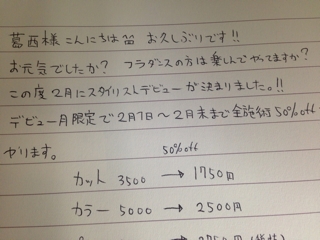 葛西様 こんにちは お久しぶりです!!
お元気でしたか? フラダンスの方は楽しんでやってますか?
この度2月にスタイリストデビューが決まりました。!!
デビュー月限定で2月7日〜2月末まで全施術50%off
やります。
50%off
カット 3500 → 1750円
カラー 5000 → 2500円